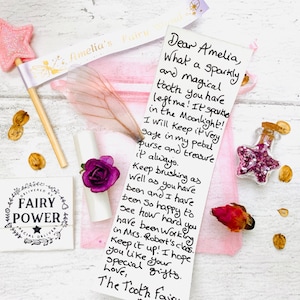 Amelia's Fairy
Dear Amelia,
What a sparkly
and magical
tooth you have
left me! It sparkles
in the Moonlight!
I will keep it very
safe in my petal
purse and treasure
it always.
Keep brushing as
well as you have
been and I have
been so happy to
see how hard you
have been working
in Mrs. Robert's class.
Keep it up! I hope
you like your
special gifts.
Love,
The Tooth Fairy
FAIRY
POWER